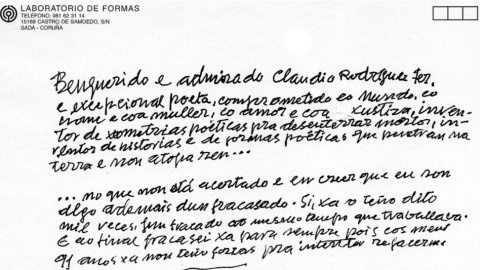 LABORATORIO DE FORMAS
TELÉFONO: 981 62 31 14
15168 CASTRO DE SAMOEDO, S/N
SADA - CORUÑA
Benquerido e admirado Claudio Rodríguez Fer,
e excepcional poeta, comprometido co mundo, co
home e coa muller, co amor e coa xustiza, inven-
tor de xeometrías poéticas pra desenterrar mortos, in-
ventor de historias e de formas poéticas que penetran na
terra e non atopa ren...
... no que non está acertado e en creer que eu son
algo ademais dun fracasado. Si, xa o teño dito
mil veces, fun fracado ao mesmo tempo que traballaba.
E ao final fracasei xa para sempre pois cos meus
91 anos xa non teño forzas pra intentar refacerme